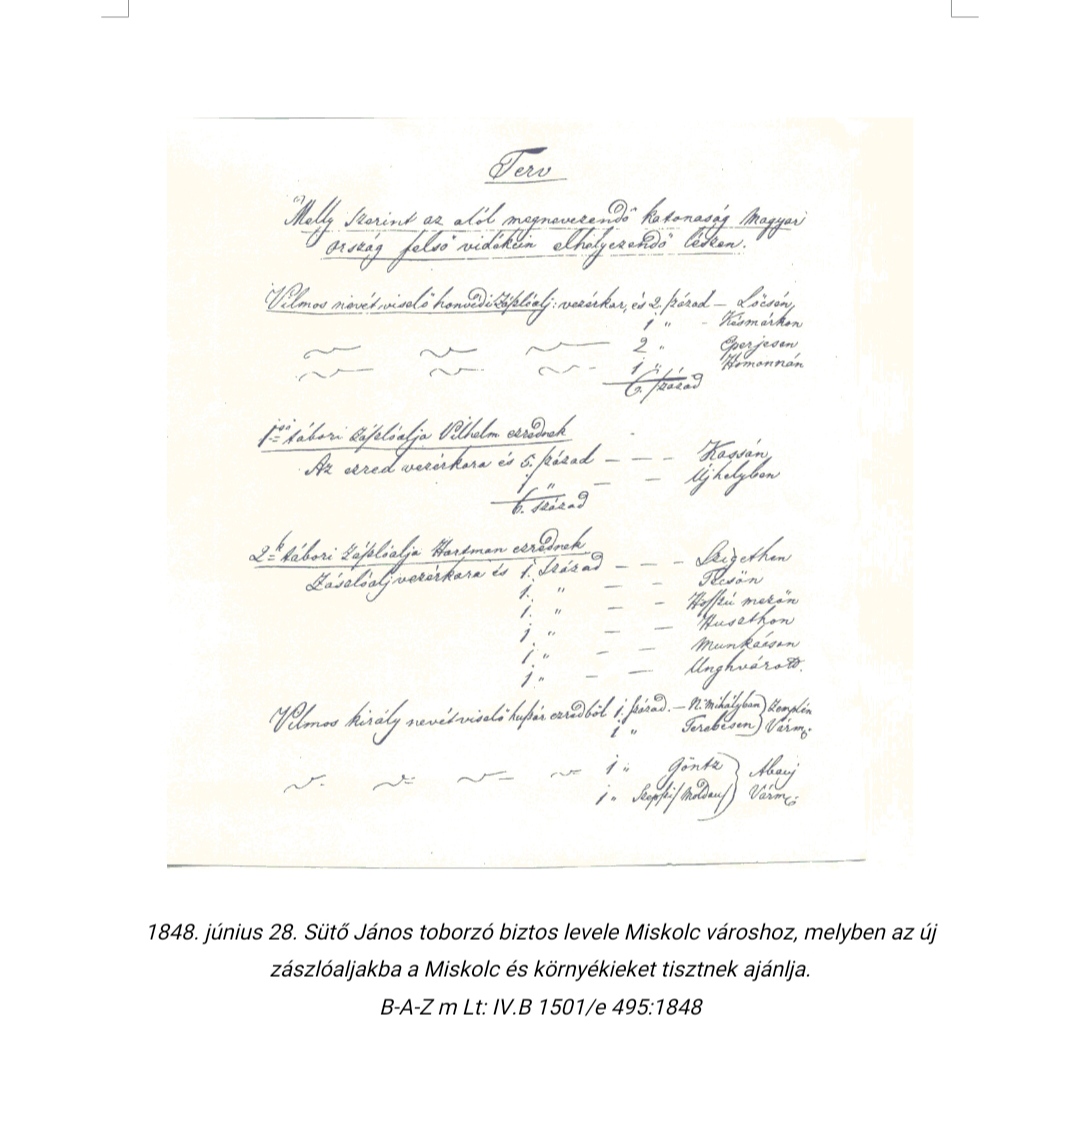 Terv
Melly szerint az alól megnevezendő katonaság Magyar
ország felső vidékein elhelyezendő lészen.
Vilmos nevét viselő honvédi zászlóalj: vezérkar, és 2. század — Lőcsén,
1 " - Késmárkon
2 " Eperjesen
1 " Homonnán
6. század
1ső tábori zászlóalja Vilhelm ezrednek
Az ezred vezérkara és 5. század — — — Kassán,
1 " — — Ujhelyben
6. század
2k tábori zászlóalja Hartman ezrednek
Zászlóalj vezérkara és 1. század — — — Szigethen
1. " — — Técsőn
1. " — — Hosszú mezőn
1 " — — Huszthon
1 " — — Munkácson
1 " — — Unghvárott.
Vilmos király nevét viselő huszár ezredből 1. század. — N. Mihályban) Zemplén
1 " Terebesen) Várm:
1 " Göntz ) Abauj
1 " Szepsi/Moldau/) Várm:
1848. június 28. Sütő János toborzó biztos levele Miskolc városhoz, melyben az új
zászlóaljakba a Miskolc és környékieket tisztnek ajánlja.
B-A-Z m Lt: IV.B 1501/e 495:1848